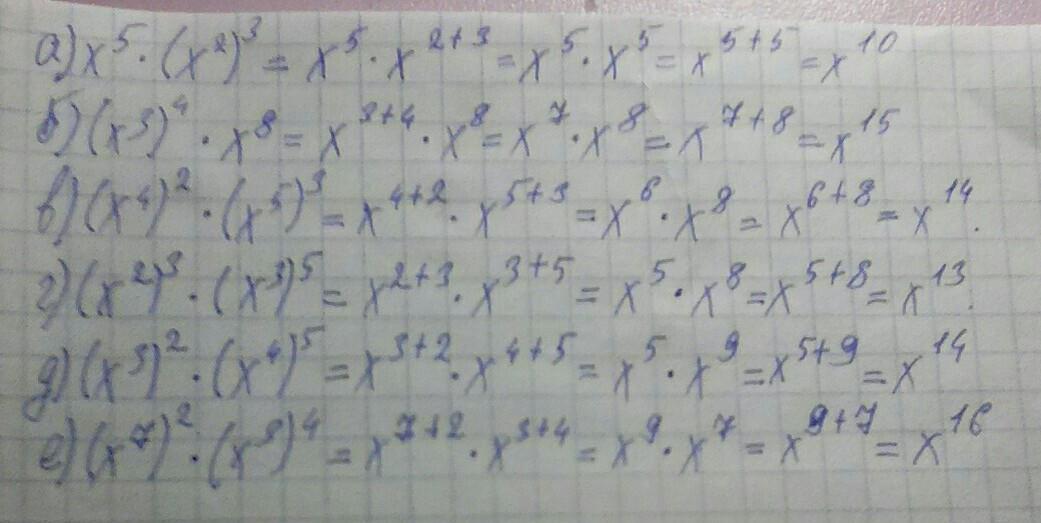 а) x⁵ · (x²)³ = x⁵ · x²⁺³ = x⁵ · x⁵ = x⁵⁺⁵ = x¹⁰
б) (x³)⁴ · x⁸ = x³⁺⁴ · x⁸ = x⁷ · x⁸ = x⁷⁺⁸ = x¹⁵
в) (x⁴)² · (x⁵)³ = x⁴⁺² · x⁵⁺³ = x⁶ · x⁸ = x⁶⁺⁸ = x¹⁴.
г) (x²)³ · (x³)⁵ = x²⁺³ · x³⁺⁵ = x⁵ · x⁸ = x⁵⁺⁸ = x¹³.
д) (x³)² · (x⁴)⁵ = x³⁺² · x⁴⁺⁵ = x⁵ · x⁹ = x⁵⁺⁹ = x¹⁴
е) (x⁷)² · (x³)⁴ = x⁷⁺² · x³⁺⁴ = x⁹ · x⁷ = x⁹⁺⁷ = x¹⁶